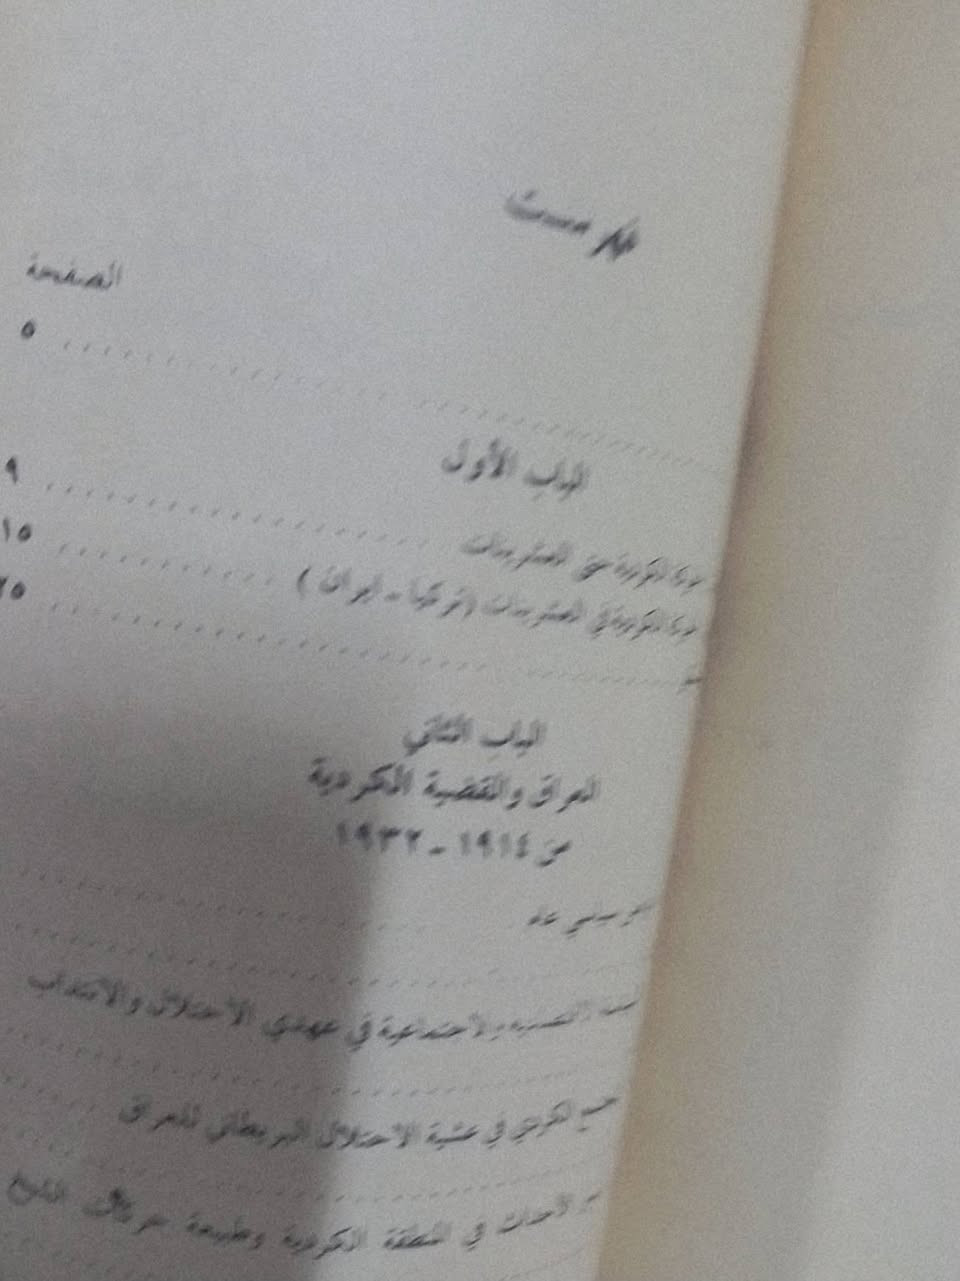 فهرست
الصفحة
٥
الباب الأول
الكردية حتى العشرينات ٩
الكردية في العشرينات (تركيا - ايران) ١٥
الباب الثاني
العراق والقضية الكردية
من ١٩١٤ - ١٩٣٢
سياسي عام
والاجتماعية في عهدي الاحتلال والانتداب
الكردي في عشية الاحتلال البريطاني للعراق
الأحداث في المنطقة الكردية وطبيعة حركات الشيخ